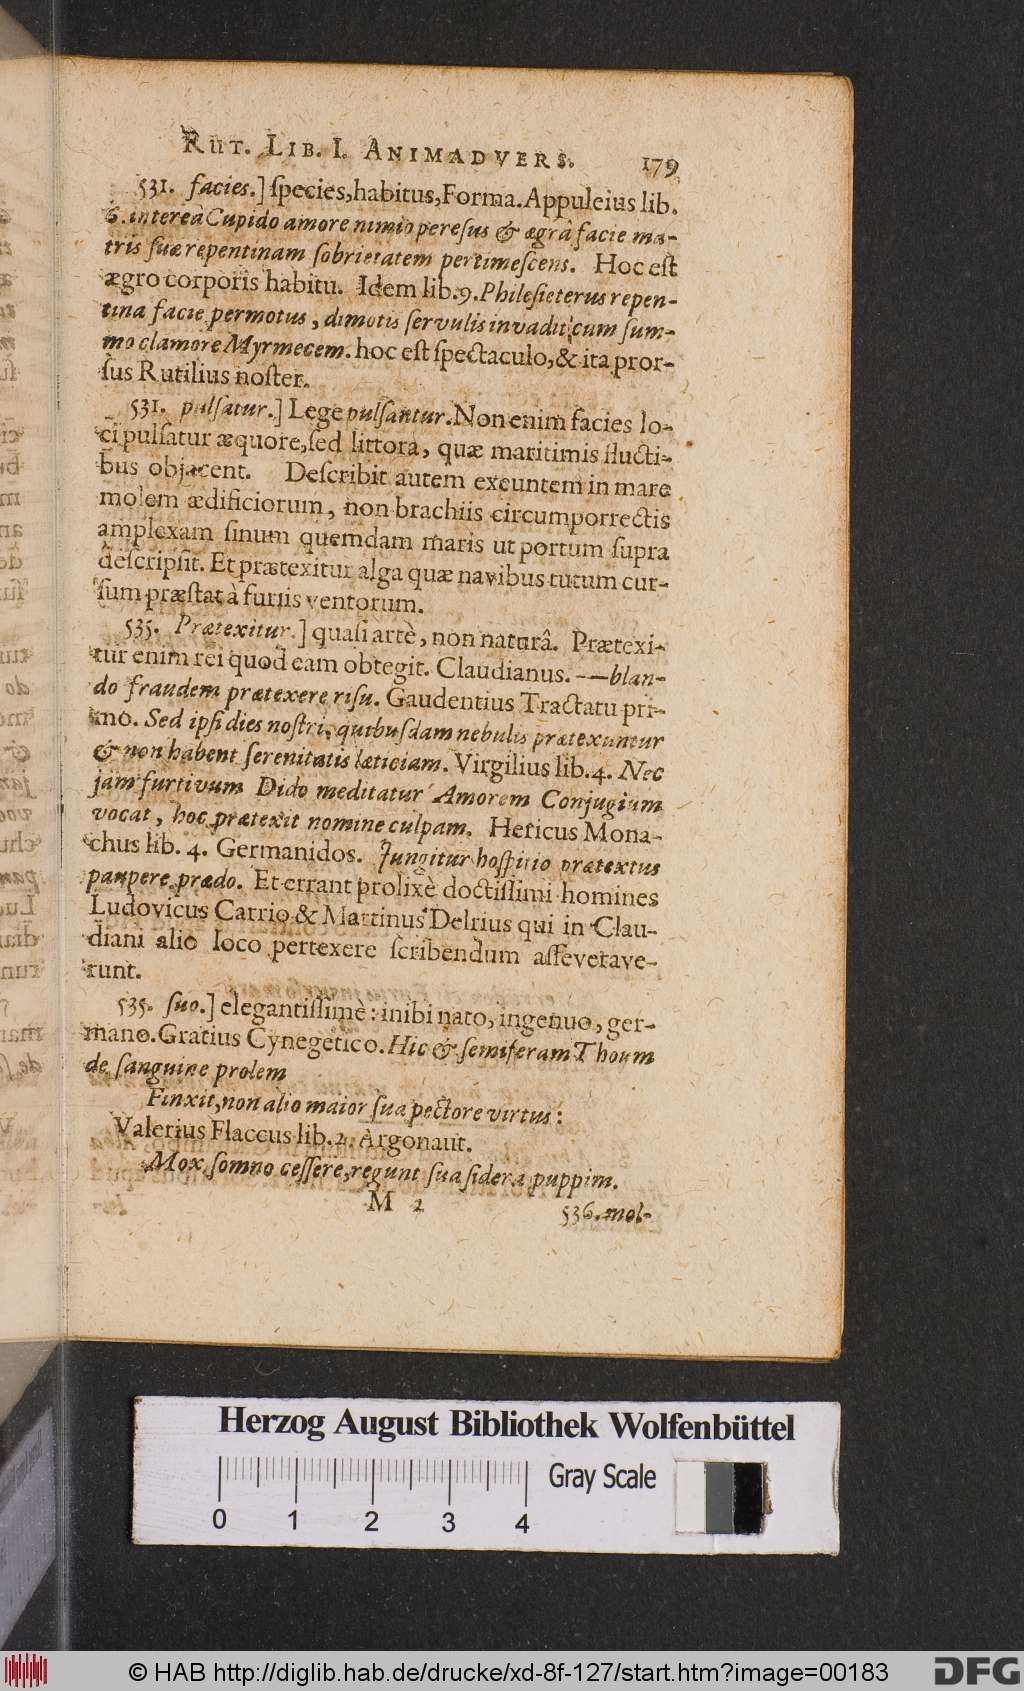 RUT. LIB. I. ANIMADVERS. 179
531. facies.] ſpecies, habitus, Forma. Appuleius lib.
6. intereà Cupido amore nimio pereſus & ægrâ facie ma-
tris ſuæ repentinam ſobrietatem pertimeſcens. Hoc eſt
ægro corporis habitu. Idem lib. 9. Phileſieterus repen-
tina facie permotus, dimotis ſervulis invadit cum ſum-
mo clamore Myrmecem. hoc eſt ſpectaculo, & ita pror-
ſus Rutilius noſter.
531. pulſatur.] Lege pulſantur. Non enim facies lo-
ci pulſatur æquore, ſed littora, quæ maritimis flucti-
bus objacent. Deſcribit autem exeuntem in mare
molem ædificiorum, non brachiis circumporrectis
amplexam ſinum quemdam maris ut portum ſupra
deſcripſit. Et prætexitur alga quæ navibus tutum cur-
ſum præſtat à furiis ventorum.
535. Prætexitur.] quaſi artè, non naturâ. Prætexi-
tur enim rei quod eam obtegit. Claudianus. --—blan-
do fraudem prætexere riſu. Gaudentius Tractatu pri-
mo. Sed ipſi dies noſtri, quibuſdam nebulis prætexuntur
& non habent ſerenitatis læticiam. Virgilius lib. 4. Nec
jam furtivum Dido meditatur Amorem Conjugium
vocat, hoc prætexit nomine culpam. Hericus Mona-
chus lib. 4. Germanidos. Jungitur hoſpitio prætextus
paupere prædo. Et errant prolixè doctiſſimi homines
Ludovicus Carrio & Martinus Delrius qui in Clau-
diani alio loco pertexere ſcribendum aſſeverave-
runt.
535. ſuo.] elegantiſſimè: inibi nato, ingenuo, ger-
mano. Gratius Cynegetico. Hic & ſemiferam Thoum
de ſanguine prolem
Finxit, non alio maior ſua pectore virtus:
Valerius Flaccus lib. 2. Argonaut.
Mox ſomno ceſſere, regunt ſua ſidera puppim.
M 2 536. mol-
Herzog August Bibliothek Wolfenbüttel
Gray Scale
0 1 2 3 4
© HAB http://diglib.hab.de/drucke/xd-8f-127/start.htm?image=00183
DFG